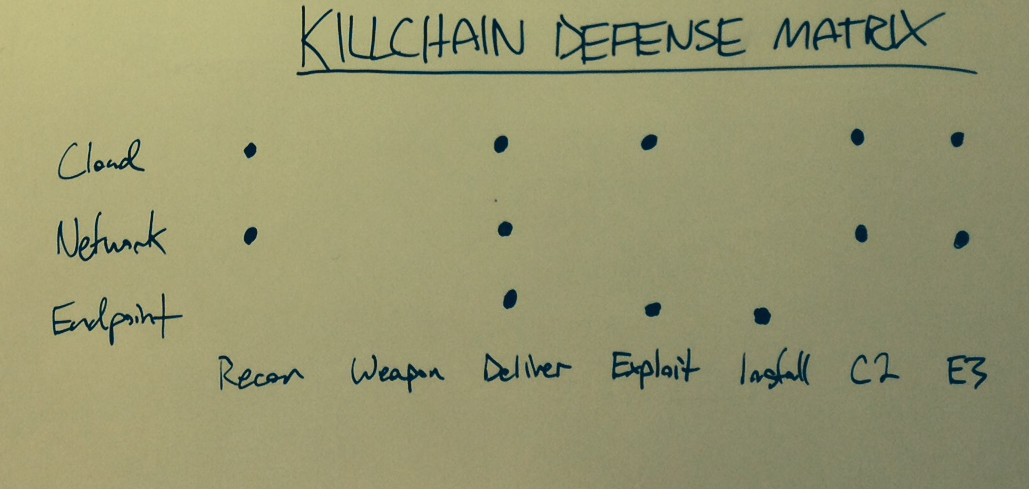 KILLCHAIN DEFENSE MATRIX
Cloud
Network
Endpoint
Recon Weapon Deliver Exploit Install C2 E3